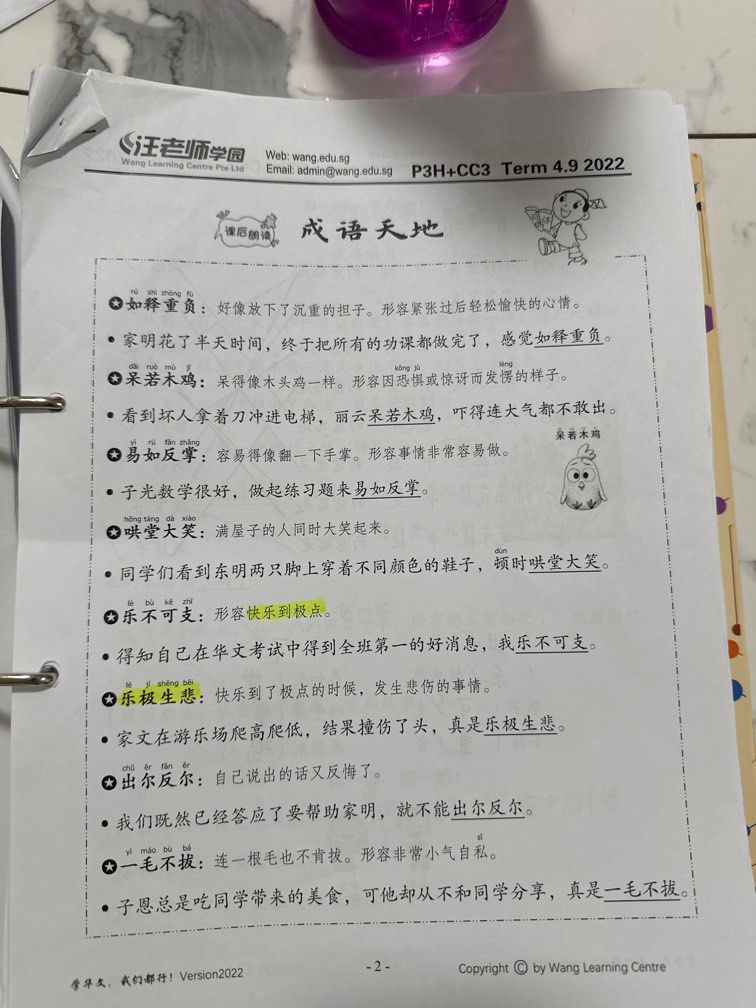 汪老师学园
Wang Learning Centre Pte Ltd
Web: wang.edu.sg
Email: admin@wang.edu.sg
P3H+CC3 Term 4.9 2022
课后朗读
成语天地
rú shì zhòng fù
如释重负：好像放下了沉重的担子。形容紧张过后轻松愉快的心情。
• 家明花了半天时间，终于把所有的功课都做完了，感觉如释重负。
dāi ruò mù jī kǒng jù lèng
呆若木鸡：呆得像木头鸡一样。形容因恐惧或惊讶而发愣的样子。
• 看到坏人拿着刀冲进电梯，丽云呆若木鸡，吓得连大气都不敢出。
yì rú fǎn zhǎng
易如反掌：容易得像翻一下手掌。形容事情非常容易做。
呆若木鸡
• 子光数学很好，做起练习题来易如反掌。
hōng táng dà xiào
哄堂大笑：满屋子的人同时大笑起来。
dùn
• 同学们看到东明两只脚上穿着不同颜色的鞋子，顿时哄堂大笑。
lè bù kě zhī
乐不可支：形容快乐到极点。
• 得知自己在华文考试中得到全班第一的好消息，我乐不可支。
lè jí shēng bēi
乐极生悲：快乐到了极点的时候，发生悲伤的事情。
• 家文在游乐场爬高爬低，结果撞伤了头，真是乐极生悲。
chū ěr fǎn ěr
出尔反尔：自己说出的话又反悔了。
• 我们既然已经答应了要帮助家明，就不能出尔反尔。
yì máo bù bá sī
一毛不拔：连一根毛也不肯拔。形容非常小气自私。
• 子恩总是吃同学带来的美食，可他却从不和同学分享，真是一毛不拔。
学华文，我们都行！Version2022
- 2 -
Copyright © by Wang Learning Centre